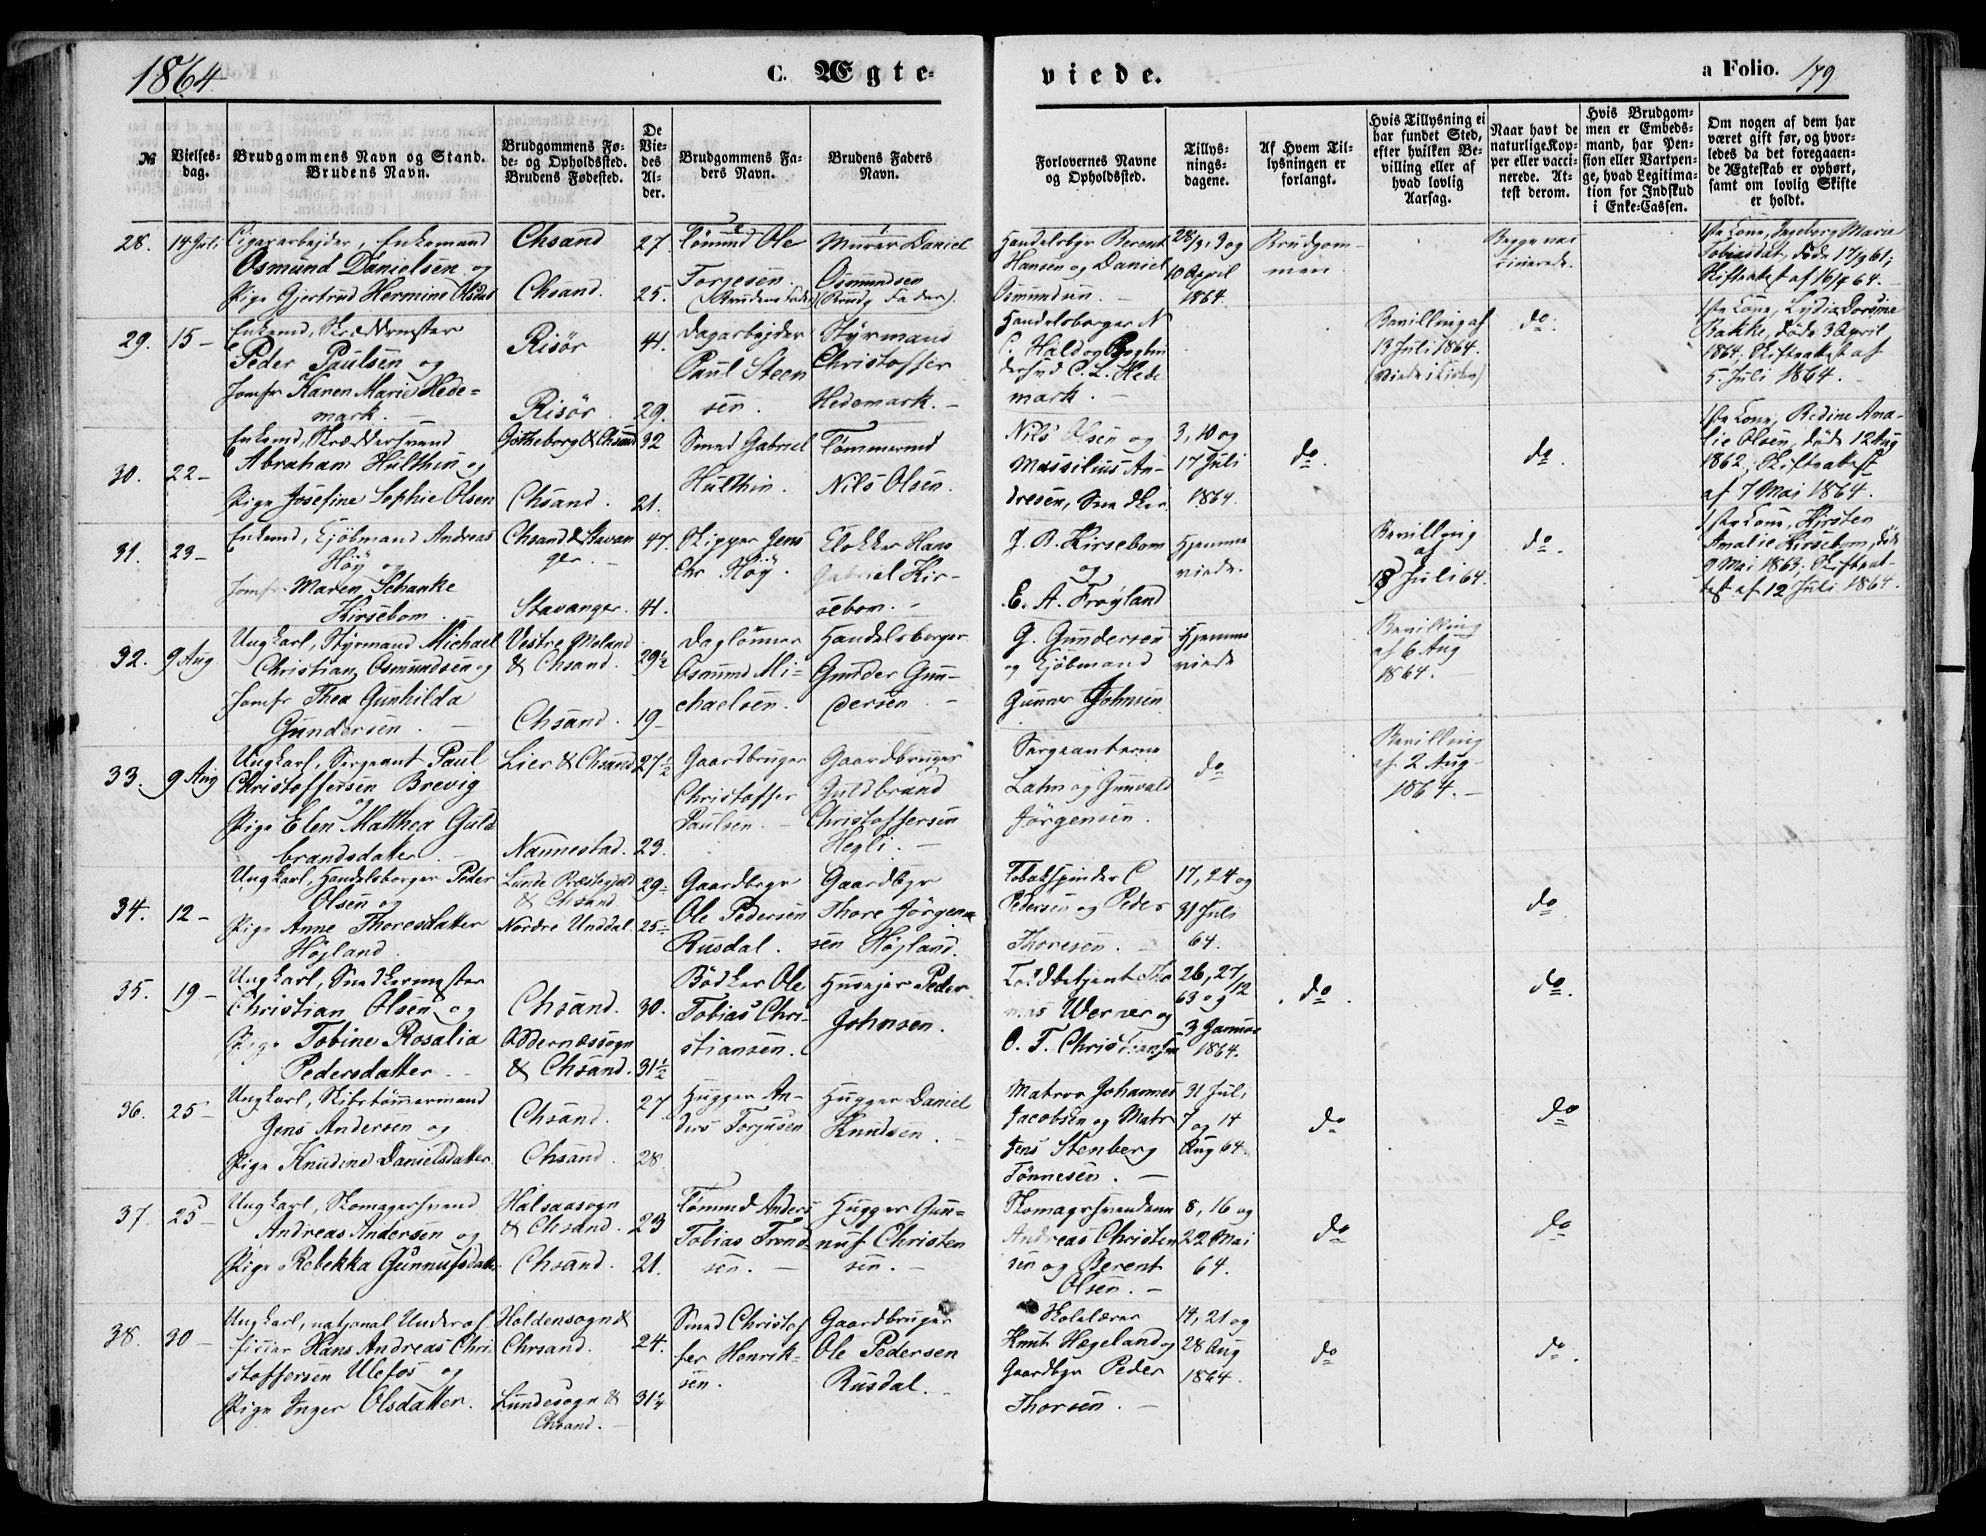 1864
C. Ægte-
viede.
a Folio. 179.
№
Vielses-
dag.
Brudgommens Navn og Stand.
Brudens Navn.
Brudgommens Fø-
de- og Opholdssted.
Brudens Fødested.
De
Vie-
des
Al-
der.
Brudgommens Fa-
ders Navn.
Brudens Faders
Navn.
Forlovernes Navne
og Opholdssted.
Tillys-
nings-
dagene.
Af Hvem Til-
lysningen er
forlangt.
Hvis Tillysning ei
har fundet Sted,
efter hvilken Be-
villing eller af
hvad lovlig
Aarsag.
Naar havt de
naturlige Kop-
per eller vacci-
nerede. At-
test derom.
Hvis Brudgom-
men er Embeds-
mand, har Pen-
sion eller Vartpen-
ge, hvad Legitima-
tion for Indskud
i Enke-Cassen.
Om nogen af dem har
været gift før, og hvor-
ledes da det foregaaen-
de Ægteskab er ophørt,
samt om lovlig Skifte
er holdt.
28. 14 Juli
Cigararbejder, Enkemand
Osmund Danielsen og
Pige Gjertrud Hermine Olsdat
Chsand
Chsand.
27
25.
Tömmd Ole
Torjesen
(Brudens Fader)
Murer Daniel
Osmundsen
(Brudg Fader).
Handelsbgr Berent
Hansen og Daniel
Osmundsen. -
28/3, 3 og
10 April
1864.
Brudgom-
men.
Begge vac
cinerede.
1ste Kone, Ingeborg Marie
Tobiasdat, døde 17/9 61;
Skifteatest af 16/4 64. -
29. 15 -
Enkemd, Skræddrmester
Peder Paulsen og
Jomfr Karen Marie Hede-
mark. -
Risör
Risör.
41.
29.
Dagarbejder
Paul Steen
sen. -
Styrmand
Christoffer
Hedemark. -
Handelsborger N
C. Hald og Bogbin
dersvd C. L. Hede
mark. -
Bevilling af
13 Juli 1864.
(Viede i Kirken)
do.
1ste Kone, Lydia Dorsine
Bakke, døde 3 April
1864; Skifteattest af
5 Juli 1864. -
30. 22 -
Enkemd, Skræddersvend
Abraham Hulthin og
Pige Josefine Sophie Olsen
Götheborg & Chsand
Chsand.
32
21.
Smed Gabriel
Hulthin.
Tömmermd
Nils Olsen.
Nils Olsen og
Massilius An-
dresen, Snedker
3, 10 og
17 Juli
1864.
do.
do.
1ste Kone, Redine Ama-
lie Olsen, døde 12 Aug
1862; Skifteattest
af 7 Mai 1864.
31. 23 -
Enkemd, Kjöbmand Andreas
Höy og
Jomfr Maren Schanke
Kirsebom. -
Chsand & Stavan
ger. -
Stavanger.
47.
41.
Skipper Jens
Chr Höy.
Klokker Hans
Gabriel Kir-
sebom. -
J. B. Kirsebom
og
E. A. Fröyland
Hjemme
viede.
Bevilling
af
18 Juli 64.
do.
1ste Kone, Kirsten
Amalie Kirsebom, døde
9 Mai 1863; Skifteat-
test af 12 Juli 1864.
32. 9 Aug
Ungkarl, Styrmand Michael
Christian Osmundsen og
Jomfr Thea Gunhilda
Gundersen. -
Vestre Moland
& Chsand.
Chsand.
29½
19 -
Daglönner
Osmund Mi-
chaelsen.
Handelsborger
Gunder Gun-
dersen. -
G. Gundersen
og Kjöbmand
Gunner Johnsen
Hjemme
viede
Bevilling
af 6 Aug
1864. -
33. 9 Aug
Ungkarl, Sergeant Paul
Christoffersen Brevig
og
Pige Elen Matthea Guld
brandsdatter. -
Lier & Chsand
Nannestad.
27½
23.
Gaardbruger
Christoffer
Paulsen. -
Gaardbruger
Guldbrand
Christoffersen
Hegli. -
Sergeanterne
Lahn og Gunvald
Jörgensen.
do
Bevilling
af 2 Aug
1864. -
34. 12 -
Ungkarl, Handelsborger Peder
Olsen og
Pige Anne Thoresdatter
Höjland.
Lunde Præstegjeld
& Chsand.
Nordre Unddal.
29-
25-
Gaardbrgr
Ole Pedersen
Rusdal.
Gaardbgr
Thore Jörgen
sen Höjland.
Tobakspinder C
Pedersen og Peder
Thoresen. -
17, 24 og
31 Juli
64.
do
35. 19 -
Ungkarl, Snedkermester
Christian Olsen og
Pige Tobine Rosalia
Pedersdatter. -
Chsand.
Oddernæssogn
& Chsand.
30.
31½
Bödker Ole
Tobias Chri-
stiansen.
Husejer Peder
Johnsen.
Toldbetjent Tho
mas Werner og
O. T. Christiansen
26, 27/12
63 og
3 Januar
1864.
do.
do.
36. 25 -
Ungkarl, Skibstömmermand
Jens Andersen og
Pige Knudine Danielsdatter.
Chsand.
Chsand.
27.
28.
Hugger An-
ders Torjusen
Hugger Daniel
Knudsen. -
Matros Johannes
Jacobsen og Matr
Jens Stenberg
Tönnesen. -
31 Juli
7 og 14
Aug 64.
do
do
37. 25 -
Ungkarl, Skomagersvend
Andreas Andersen og
Pige Rebekka Gunnufsdatt
Halsaasogn
& Chsand.
Chsand.
23
21.
Tömmd Anders
Tobias Trond-
sen. -
Hugger Gun-
nuf Christen
sen. -
Skomagrsvendene
Andreas Christen
sen og Berent
Olsen. -
8, 16 og
22 Mai
64.
do
do
38. 30 -
Ungkarl, natjonal Underof
ficier Hans Andreas Chri-
stoffersen Ulefos og
Pige Inger Olsdatter.
Holdensogn &
Chrsand.
Lundesogn &
Chsand. -
24.
31¼
Smed Christof
fer Henrik-
sen.
Gaardbruger
Ole Pedersen
Rusdal. -
Skolelærer
Knut Hægeland og
Gaardbgr Peder
Thorsen. -
14, 21 og
28 Aug
1864.
do
do.